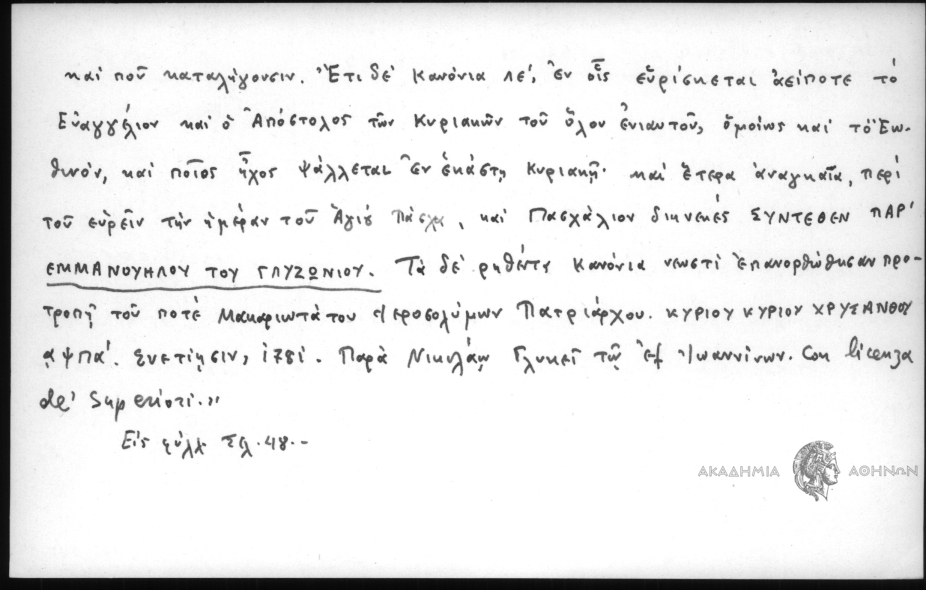 καί ποῦ καταλήγουσιν. Ἔτι δέ Κανόνια λέ, ἐν οἷς εὑρίσκεται ἀείποτε τό
Εὐαγγέλιον καί ὁ Ἀπόστολος τῶν Κυριακῶν τοῦ ὅλου ἐνιαυτοῦ, ὁμοίως καί τό Ἑω-
θινόν, καί ποῖος ἦχος ψάλλεται ἐν ἑκάστῃ Κυριακῇ· καί ἕτερα ἀναγκαῖα, περί
τοῦ εὑρεῖν τήν ἡμέραν τοῦ Ἁγίου Πάσχα, καί Πασχάλιον διηνεκές ΣΥΝΤΕΘΕΝ ΠΑΡ'
ΕΜΜΑΝΟΥΗΛΟΥ ΤΟΥ ΓΛΥΖΩΝΙΟΥ. Τά δέ ρηθέντα Κανόνια νεωστί ἐπανορθώθησαν προ-
τροπῇ τοῦ ποτέ Μακαριωτάτου Ἱεροσολύμων Πατριάρχου. ΚΥΡΙΟΥ ΚΥΡΙΟΥ ΧΡΥΣΑΝΘΟΥ
αψπά. Ἐνετίησιν, 1781. Παρά Νικολάῳ Γλυκεῖ τῷ ἐξ Ἰωαννίνων. Con licenza
de' Superiori."
Εἰς φύλλ. Σελ. 48.-
ΑΚΑΔΗΜΙΑ ΑΘΗΝΩΝ